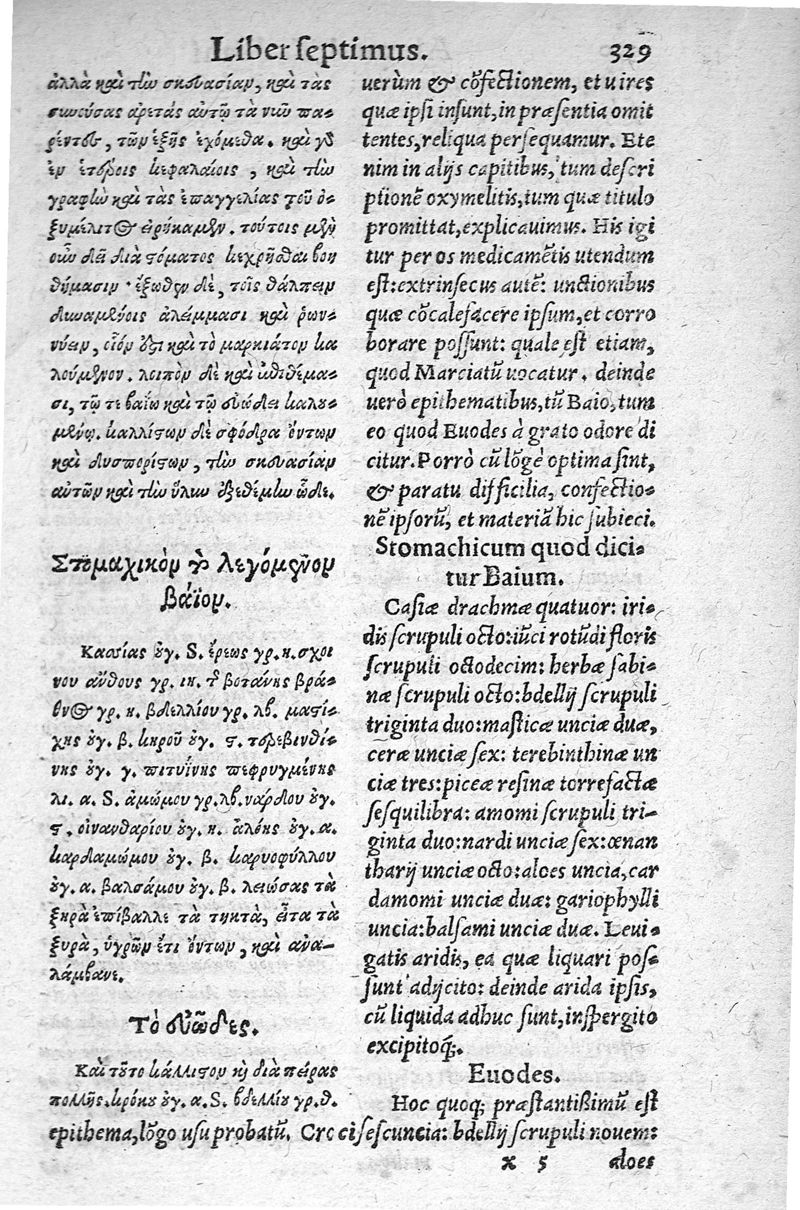 Liber ſeptimus. 329
ἀλλὰ καὶ τὴν σκευασίαν, καὶ τὰς
συνούσας ἀρετὰς αὐτῷ τὰ νῦν πα-
ρέντες, τῶν ἑξῆς ἐχόμεθα. καὶ γὸ
ἐν ἑτέροις κεφαλαίοις, καὶ τὴν
γραφὴν καὶ τὰς ἐπαγγελίας τοῦ ὀ-
ξυμέλιτος εἰρήκαμεν. τούτοις μὲν
οὖν δεῖ διὰ στόματος κεχρῆσθαι βοη
θήμασιν· ἔξωθεν δὲ, τοῖς θάλπειν
δυναμένοις ἀλείμμασι καὶ ῥων-
νύειν, οἷόν ὅζι καὶ τὸ μαρκιάτον κα
λούμενον. λοιπὸν δὲ καὶ ἐπιθέμα-
σι, τῷ τε βαΐῳ καὶ τῷ εὐώδει καλου-
μένῳ. καλλίστων δὲ σφόδρα ὄντων
καὶ δυσπορίστων, τὴν σκευασίαν
αὐτῶν καὶ τὴν ὕλην ἐξεθέμην ὧδε.
Στομαχικὸν τὸ λεγόμενον
βάϊον.
Κασίας ὀγ. S. ἴρεως γρ. η. σχοί
νου ἄνθους γρ. ιη. τῆ βοτάνης βρά-
θυος γρ. η. βδελλίου γρ. λβ. μαστί-
χης ὀγ. β. κηροῦ ὀγ. ϛ. τερεβινθί-
νης ὀγ. γ. πιτυΐνης πεφρυγμένης
λι. α. S. ἀμώμου γρ. λβ. νάρδου ὀγ.
ϛ. οἰνανθαρίου ὀγ. η. ἀλόης ὀγ. α.
καρδαμώμου ὀγ. β. καρυοφύλλου
ὀγ. α. βαλσάμου ὀγ. β. λειώσας τὰ
ξηρὰ ἐπίβαλλε τὰ τηκτὰ, εἶτα τὰ
ξυρὰ, ὑγρῶν ἔτι ὄντων, καὶ ἀνα-
λάμβανε.
Τὸ εὐῶδες.
Καὶ τοῦτο κάλλιστον κỳ διὰ πείρας
πολλῆς. κρόκου ὀγ. α. S. βδελλίου γρ. θ.
uerùm & cõfectionem, et uires
quæ ipſi inſunt, in præſentia omit
tentes, reliqua perſequamur. Ete
nim in alijs capitibus, tum deſcri
ptionẽ oxymelitis, tum quæ titulo
promittat, explicauimus. His igi
tur per os medicamẽtis utendum
eſt: extrinſecus autẽ: unctionibus
quæ cõcalefacere ipſum, et corro
borare poſſunt: quale eſt etiam,
quod Marciatũ uocatur. deinde
uerò epithematibus, tũ Baio, tum
eo quod Euodes à grato odore di
citur. Porrò cũ lõgè optima ſint,
& paratu difficilia, confectio-
nẽ ipſorũ, et materiã hic ſubieci.
Stomachicum quod dici-
tur Baium.
Caſiæ drachmæ quatuor: iri-
dis ſcrupuli octo: iũci rotũdi floris
ſcrupuli octodecim: herbæ ſabi-
næ ſcrupuli octo: bdellij ſcrupuli
triginta duo: maſticæ unciæ duæ,
ceræ unciæ ſex: terebinthinæ un
ciæ tres: piceæ reſinæ torrefactæ
ſeſquilibra: amomi ſcrupuli tri-
ginta duo: nardi unciæ ſex: œnan
tharij unciæ octo: aloes uncia, car
damomi unciæ duæ: gariophylli
uncia: balſami unciæ duæ. Leui-
gatis aridis, ea quæ liquari poſ-
ſunt adijcito: deinde arida ipſis,
cũ liquida adhuc ſunt, inſpergito
excipitoq́;.
Euodes.
Hoc quoq; præſtantißimũ eſt
epithema, lõgo uſu probatũ. Croci ſeſcuncia: bdellij ſcrupuli nouem:
x 5 aloes